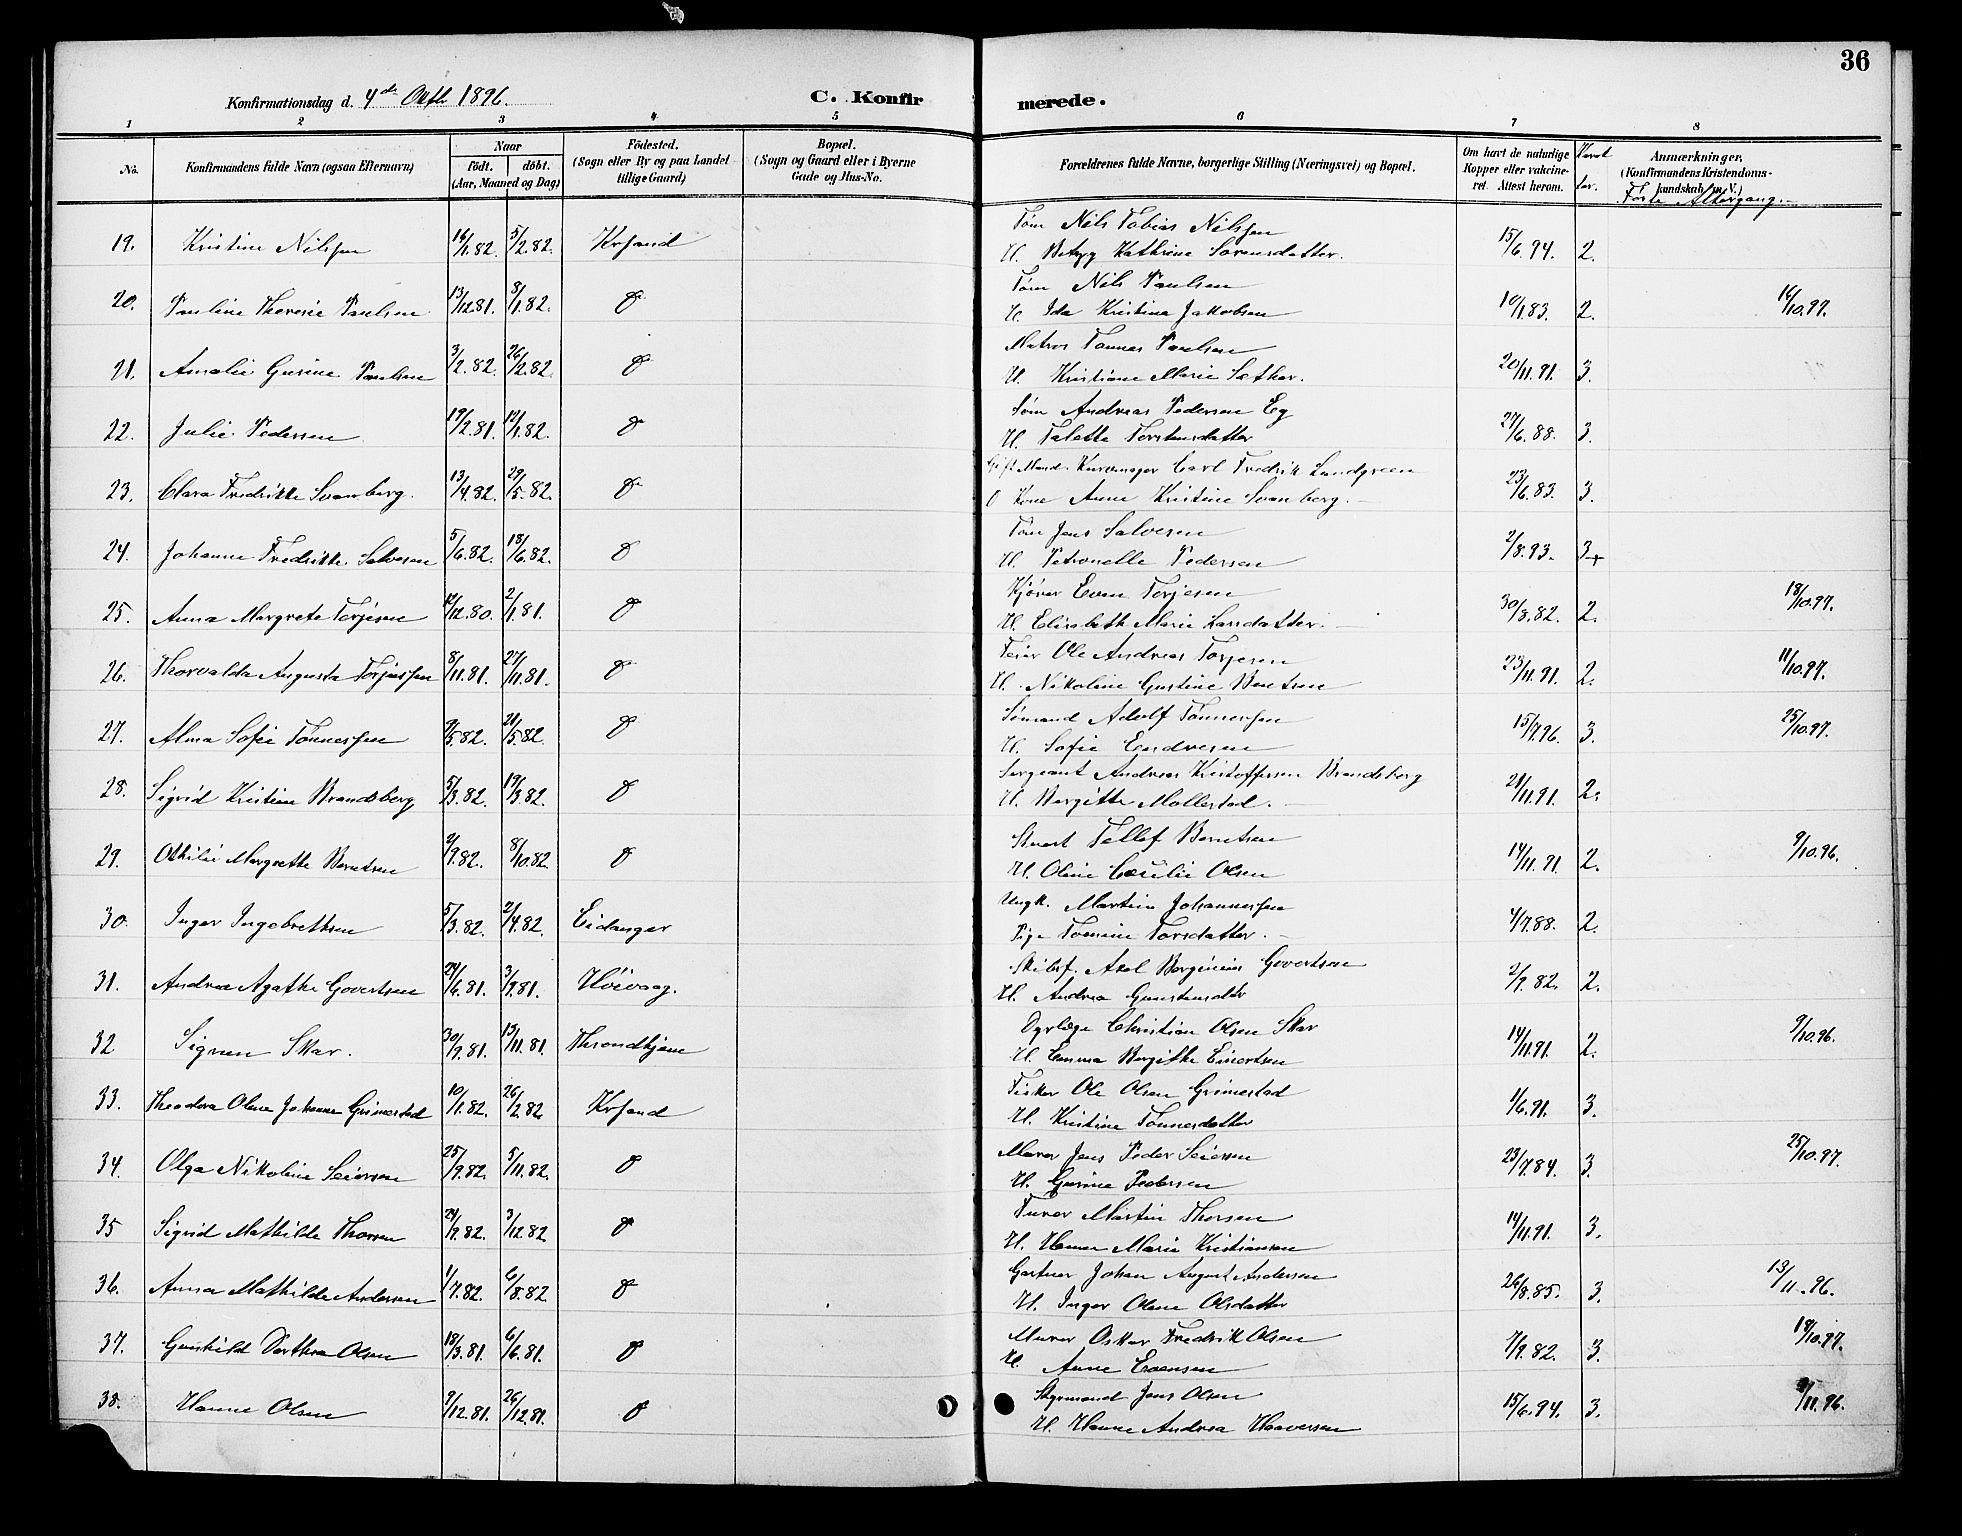 36
Konfirmationsdag d. 4de Oktb 1896.
C. Konfir merede.
1 2 3 4 5 6 7 8
No. Konfirmandens fulde Navn (ogsaa Efternavn) Naar født. døbt. (Aar, Maaned og Dag) Fødested. (Sogn eller By og paa Landet tillige Gaard) Bopæl. (Sogn og Gaard eller i Byerne Gade og Hus-No. Forældrenes fulde Navne, borgerlige Stilling (Næringsvei) og Bopæl. Om havt de naturlige Kopper eller vakcineret. Attest herom. Karakter. Anmærkninger, (Konfirmandens Kristendomskundskab m. V.) Første Altergang.
Tøm Nils Tobias Nilssen
19. Kristine Nilssen 16/1.82. 5/2.82. Krsand 15/6.94. 2.
H. Kathrine Sørensdatter.
Tøm Nils Paulsen
20. Pauline Theresie Paulsen 13/12.81. 8/1.82. d 10/1.83. 2. 16/10.97.
H. Ida Kristina Jakobsen
Matros Tønnes Paulsen
21. Amalie Gurine Paulsen 3/2.82. 26/2.82. d 20/11.91. 3.
H. Kristiane Marie Sæther.
Søm Andreas Pedersen Eg
22. Julie Pedersen 19/2.81. 12/1.82. d 27/6.88. 3.
H. Talette Torstensdatter
Gift Mand. Kurvmager Carl Fredrik Landgreen
23. Clara Fredrikke Svanberg. 13/4.82. 29/5.82. d 23/6.83. 3.
Kone Anne Kristine Svanberg.
Tøm Jens Salvesen
24. Johanne Fredrikke Salvesen 5/6.82. 18/6.82. d 2/8.93. 3+
H. Petronelle Pedersen
Kjører Even Torjesen
25. Anna Margrete Torjesen 12/12.80. 2/1.81. d 30/8.82. 2. 18/10.97.
H. Elisabeth Marie Larsdatter.
Feier Ole Andreas Torjesen
26. Thorvalda Augusta Torjussen 8/11.81. 27/11.81. d 23/11.91. 2. 11/10.97.
H. Nikoline Gustine Bentsen
Sømand Adolf Tønnessen
27. Alma Sofie Tønnessen 9/5.82. 21/5.82. d 15/7.96. 3. 25/10.97.
H. Sofie Endresen
Sergeant Andreas Kristoffersen Brandsberg
28. Sigrid Kristine Brandsberg 5/3.82. 19/3.82. d 21/11.91. 2.
H. Bergitte Mollestad.
Stuert Tellef Berntsen
29. Othilie Margrethe Berntsen 2/9.82. 8/10.82. d 14/11.91. 2. 9/10.96.
H. Oline Cecilie Olsen
Ungk. Martin Johannessen
30. Inger Ingebrettsen 5/3.82. 2/4.82. Eidanger 4/7.88. 2.
Pige Tomine Torsdatter.
Skibsf. Axel Borgenius Govertsen
31. Andrea Agathe Govertsen 24/6.81. 3/9.81. Høivaag. 2/9.82. 2.
H. Andrea Gunstensdtr
Dyrlæge Christian Olsen Skar
32 Signen Skar. 30/9.81. 13/11.81. Throndhjem 14/11.91. 2. 9/10.96.
H. Emma Bergitte Einertsen
Fisker Ole Olsen Grimestad
33. Theodora Oline Johanne Grimestad 10/1.82. 26/2.82 Krsand 1/6.91. 3.
H. Kristine Tønnesdatter
Murer Jens Peder Seiersen
34. Olga Nikoline Seiersen 25/9.82. 5/11.82. d 23/7.84. 3. 25/10.97.
H. Gurine Pedersen
Turer Martin Thorsen
35 Sigrid Mathilde Thorsen 24/9.82. 3/12.82 d 14/11.91. 3.
H. Hanna Marie Kristiansen
Gartner Johan August Andersen
36. Anna Mathilde Andersen 1/7.82. 6/8.82 d 26/8.85. 3. 13/11.96.
H. Inger Oline Olsdatter
Murer Oskar Fredrik Olsen
37. Gunhild Dorthea Olsen 18/3.81. 6/6.81. d 7/9.82. 3. 18/10.97.
H. Anne Evensen
Styrmand Jens Olsen
38. Hanne Olsen 9/12.81. 26/12.81. d 15/6.94. 3. 9/11.96.
H. Hanne Andrea Haaversen